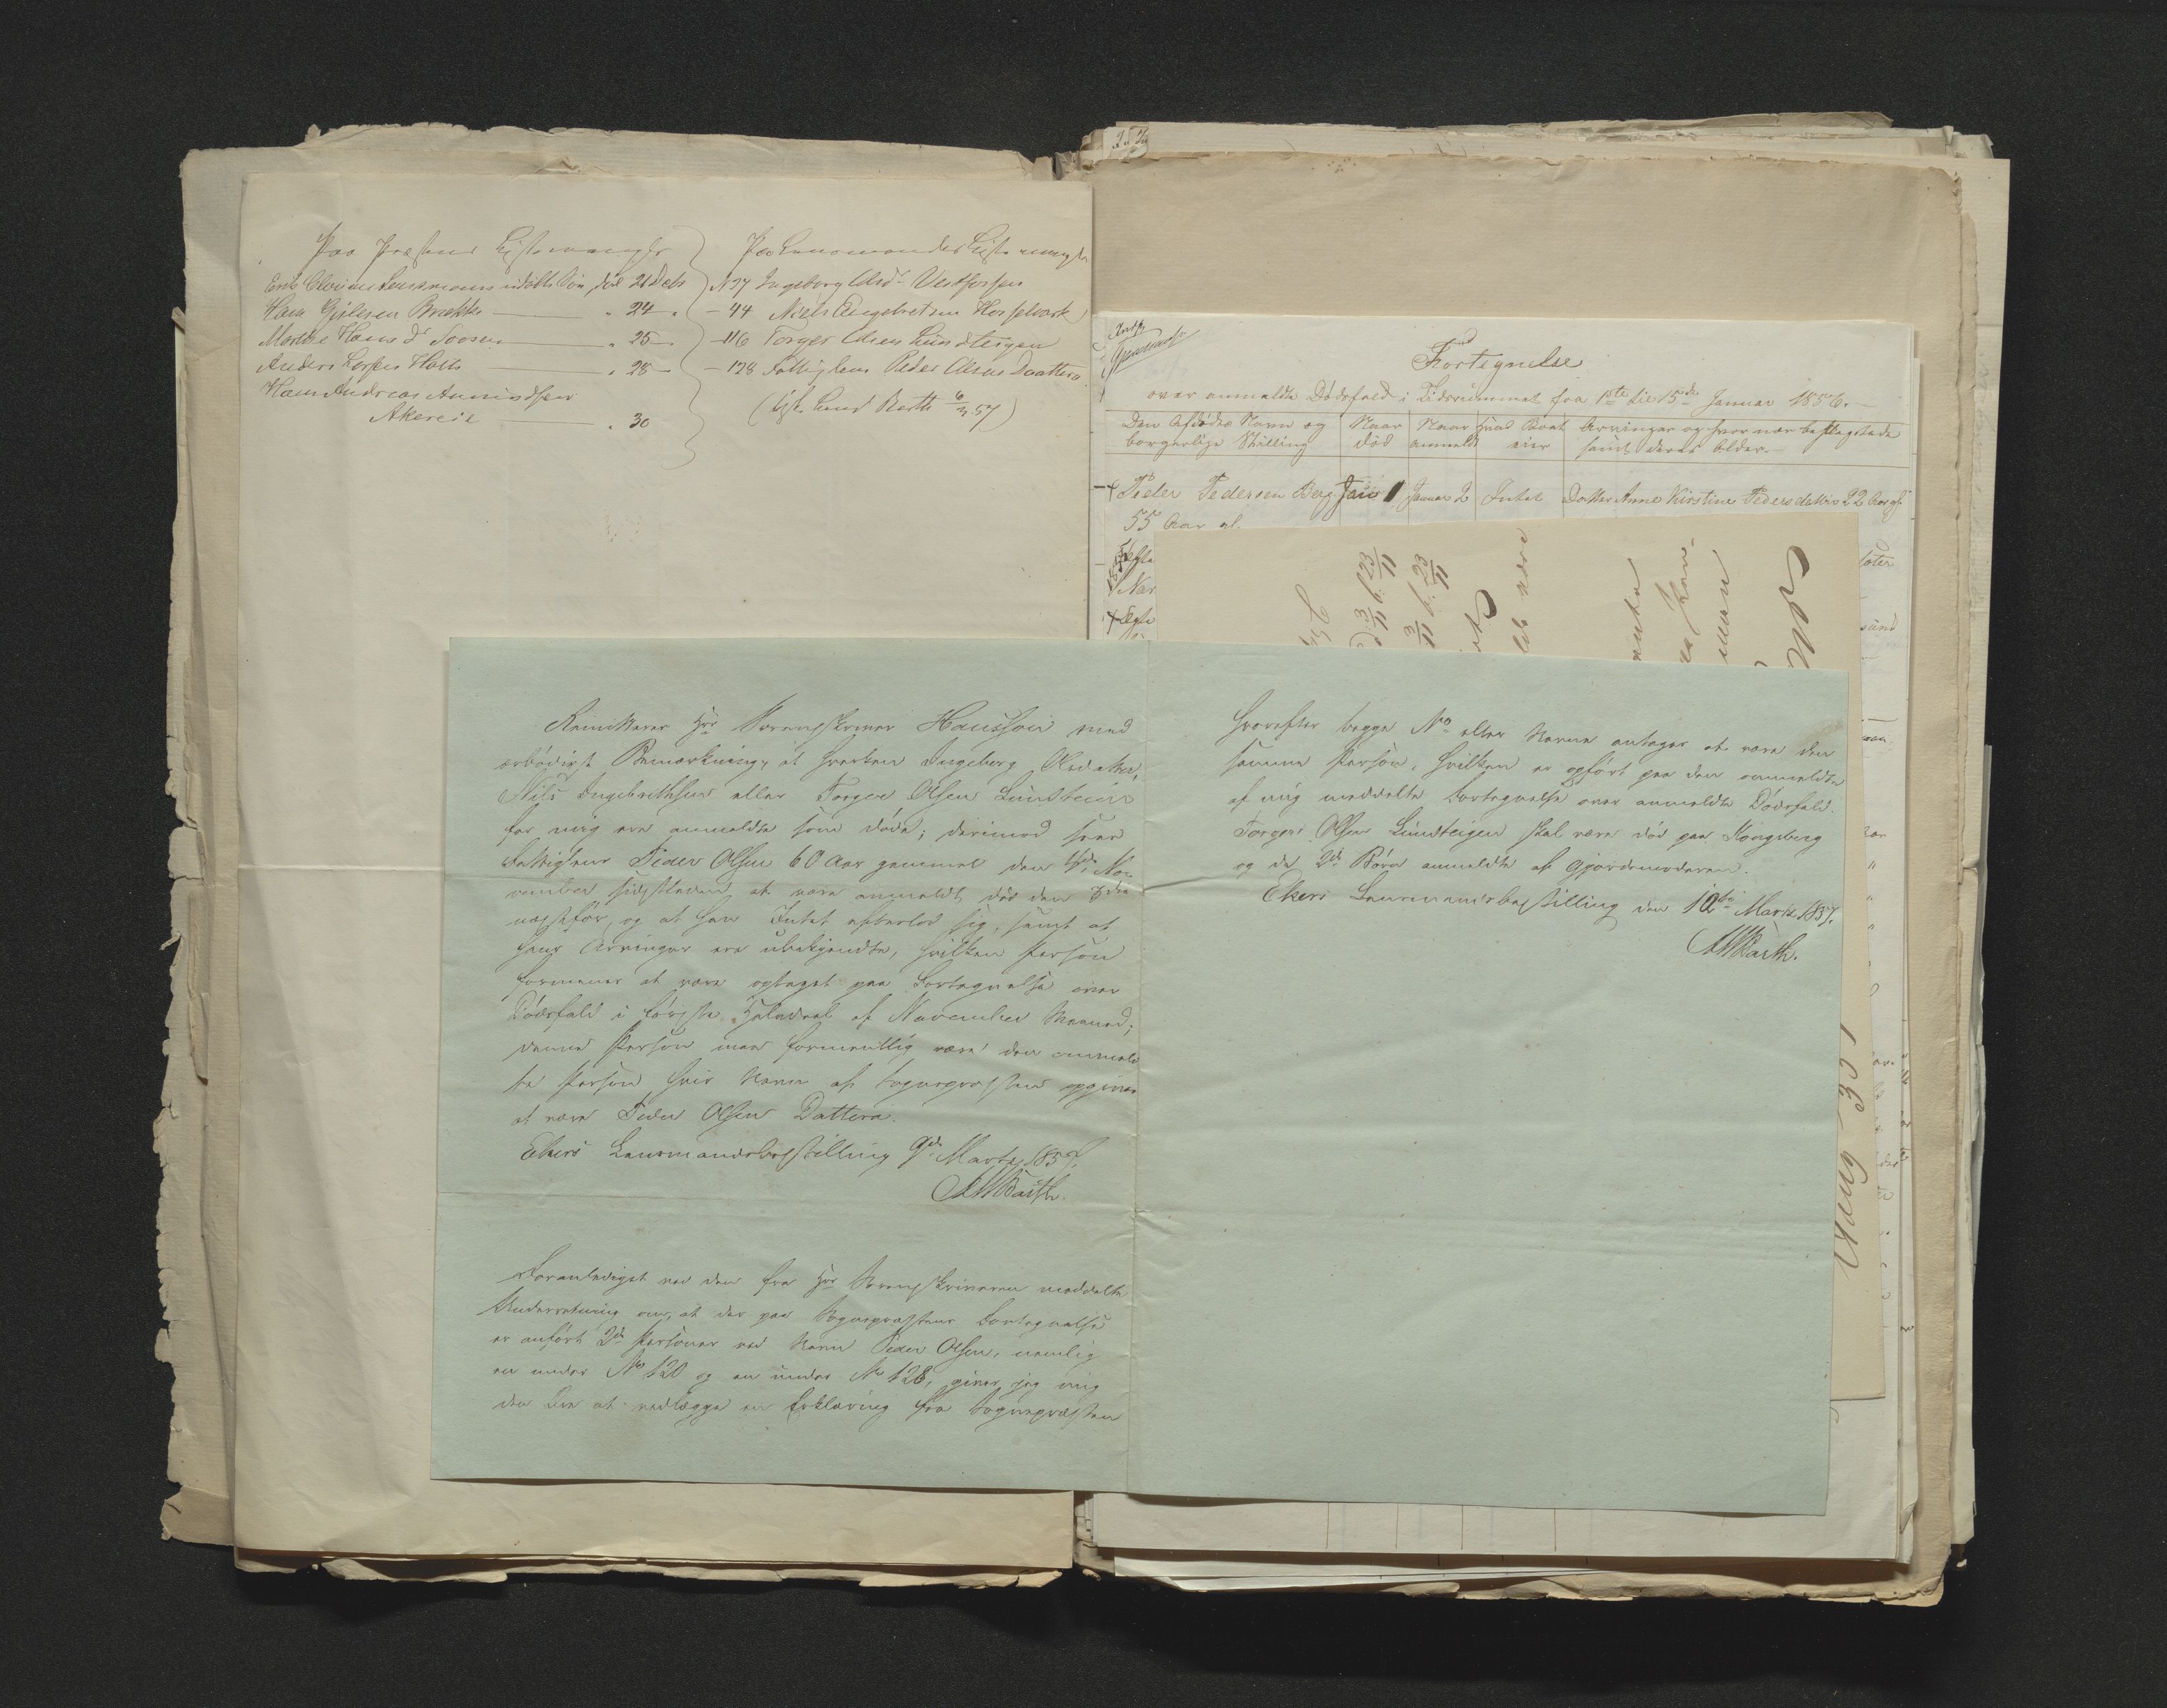 Paa Prestens Liste mangler
Erik Olsens Lensmann uægte Søn, død 21 Decbr
Hans Gjulsen Brække " 24 "
Marthe Hansd. Soosen " 25 "
Anders Larsen Holte " 28 "
Hans Andreas Amundsen
Akereie " 30
Paa Lensmandens Liste mangler
N 27 Ingeborg Olsdr Vestfossen
- 44 Niels Engebretsen Hasselverk
- 116 Torger Olsen Lundteigen
- 128 Fattiglem Peder Olsen Daattera
(tilsk. Lensm Barth 6/3 57)
Fortegnelse
over anmeldte Dødsfald i Tidsrummet fra 1ste til 15de Januar 1856.
Den Afdødes Navn og borgerlige Stilling
Naar død
Naar anmeldt
Hvad Boet eier
Arvinger og hvor nær beslægtede samt deres Alder
Peder Pedersen Berg Jan 1 Januar 2 Intet Datter Anne Kirstine Pedersdatter 22 Aar gl.
55 Aar gl.
Remitteres Hr Sorenskriver Hansson med
ærbødigst Bemærkning, at hverken Ingeborg Olsdatter,
Nils Ingebrethsen eller Torger Olsen Lundteigen
for mig ere anmeldte som døde; derimod sees
Fattiglem Peder Olsen 60 Aar gammel den 4de No-
vember sidstleden at være anmeldt død den 3die
næstfør, og at han Intet efterlod sig, samt at
hans Arvinger ere ubekjendte, hvilken Person
formenes at være optaget paa Fortegnelse over
Dødsfald i første Halvdeel af November Maaned;
denne Person maa formentlig være den ommeld
te Person hvis Navn af Sognepresten opgives
at være Peder Olsen Dattera.
Ekers Lensmandsbestilling 9de Marts 1857.
AWBarth.
Foranlediget ved den fra Hr Sorenskriveren meddelte
Underretning om, at der paa Sognepræstens Fortegnelse
er anført 2de Personer ved Navn Peder Olsen, nemlig
en under No 120 og en under No 128, giver jeg mig
den Ære at vedlægge en Erklæring fra Sognepræsten
hvorefter begge No eller Navne antages at være den
samme Person, hvilken er opført paa den ommeldte
af mig meddelte Fortegnelse over anmeldte Dødsfald.
Torger Olsen Lundteigen skal være død paa Kongsberg
og de 2de Børn anmeldte af Gjordemoderen.
Ekers Lensmandsbestilling den 10de Marts 1857.
AWBarth.